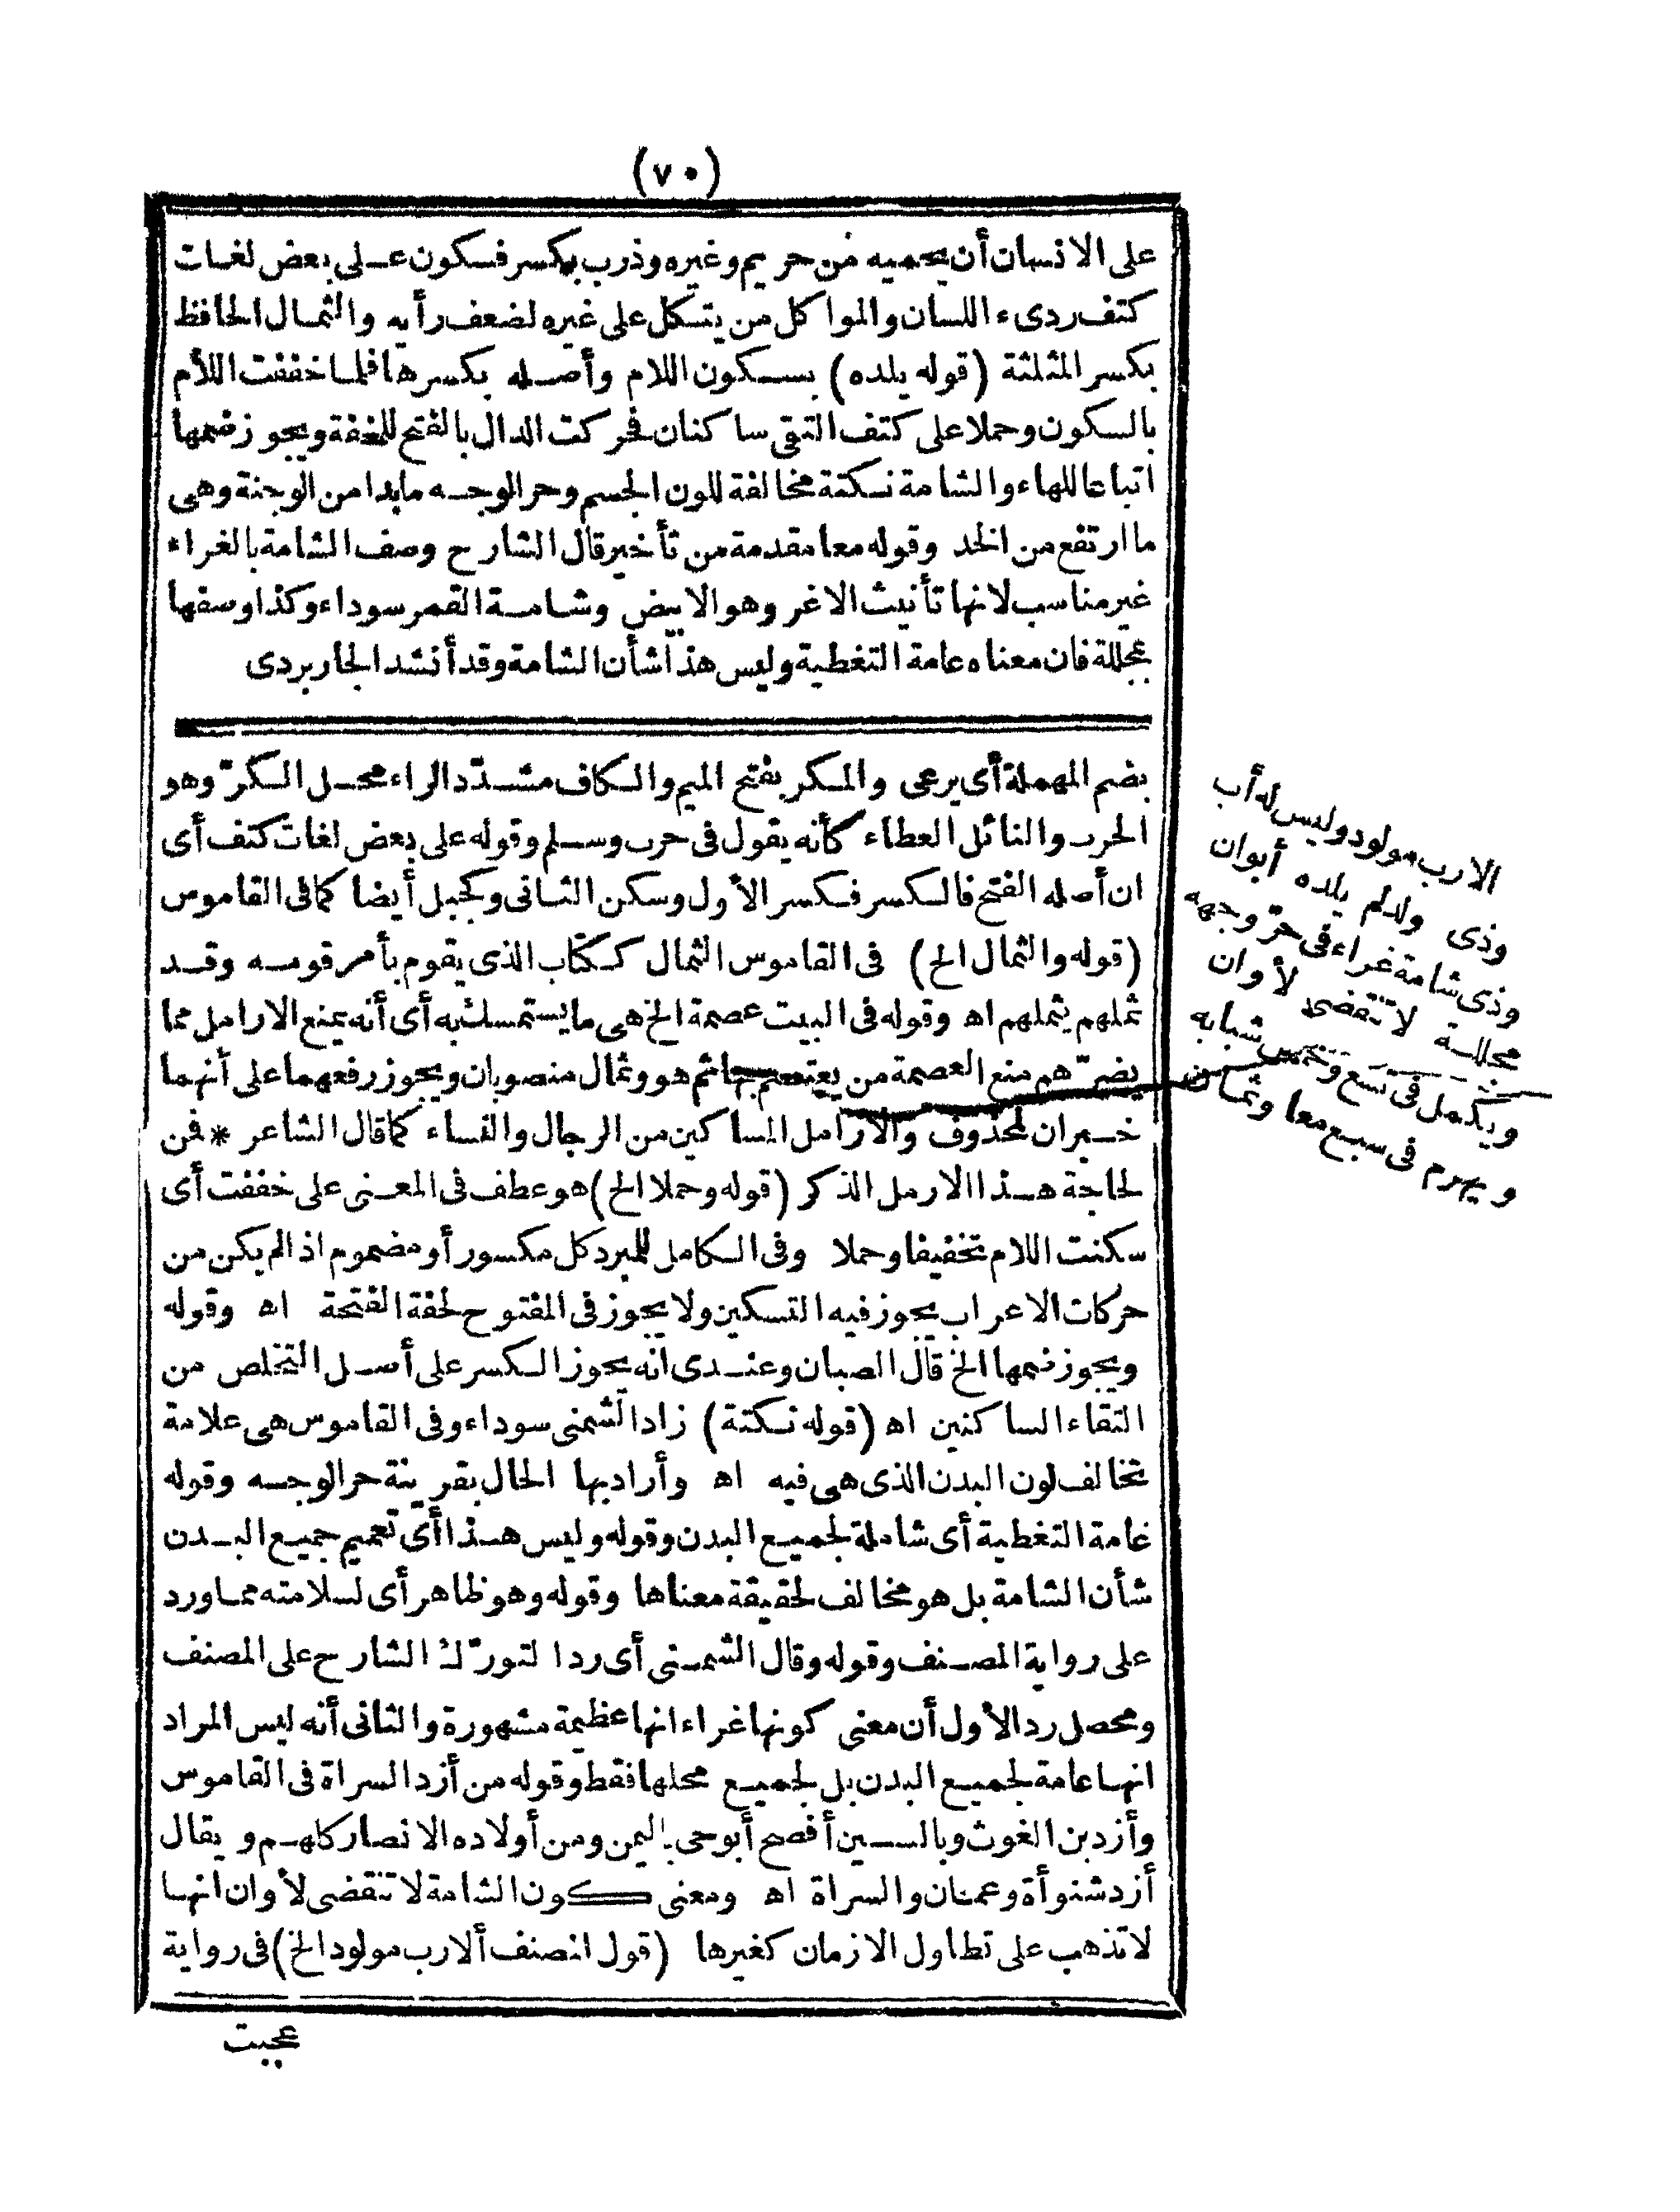 (٧٠)
على الانسان أن يحميه من حريم وغيره وذرب بكسر فسكون عـلى بعض لغات
كتف ردىء اللسان والمواكل من يتكل على غيره لضعف رأيه والثمال الحافظ
بكسر المثلثة (قوله يلده) بسكون اللام وأصله بكسرها فلما خففت اللام
بالسكون وحملا على كتف التقى ساكنان فحركت الدال بالفتح للخفة ويجوز ضمها
اتباعا للهاء والشامة نكتة مخالفة للون الجسم وحر الوجه مابدا من الوجنة وهى
ما ارتفع من الخد وقوله معا مقدمة من تأخير قال الشارح وصف الشامة بالغراء
غير مناسب لانها تأنيث الاغر وهو الابيض وشامة القمر سوداء وكذا وصفها
بمجللة فان معناه عامة التغطية وليس هذا شأن الشامة وقد أنشد الجاربردى
بضم المهملة أى يرعى والمكر بفتح الميم والكاف مشدّد الراء محل الكرّ وهو
الحرب والنائل العطاء كأنه يقول فى حرب وسلم وقوله على بعض لغات كتف أى
ان أصله الفتح فالكسر فكسر الأول وسكن الثانى وكجبل أيضا كمافى القاموس
(قوله والثمال الخ) فى القاموس الثمال ككتاب الذى يقوم بأمر قومه وقد
ثملهم يثملهم اه وقوله فى البيت عصمة الخ هى مايستمسك به أى أنه يمنع الارامل مما
يضرّهم منع العصمة من يعتصم بها ثم هو وثمال منصوبان ويجوز رفعهما على أنهما
خبران لمحذوف والارامل المساكين من الرجال والنساء كماقال الشاعر * فمن
لحاجة هذا الارمل الذكر (قوله وحملا الخ) هو عطف فى المعنى على خففت أى
سكنت اللام تخفيفا وحملا وفى الكامل للمبرد كل مكسور أو مضموم اذا لم يكن من
حركات الاعراب يجوز فيه التسكين ولا يجوز فى المفتوح لخفة الفتحة اه وقوله
ويجوز ضمها الخ قال الصبان وعندى انه يجوز الكسر على أصل التخلص من
التقاء الساكنين اه (قوله نكتة) زاد الشمنى سوداء وفى القاموس هى علامة
تخالف لون البدن الذى هى فيه اه وأراد بها الخال بقرينة حر الوجه وقوله
عامة التغطية أى شاملة لجميع البدن وقوله وليس هذا أى تعميم جميع البدن
شأن الشامة بل هو مخالف لحقيقة معناها وقوله وهو ظاهر أى لسلامته مماورد
على رواية المصنف وقوله وقال الشمنى أى ردا لتورّك الشارح على المصنف
ومحصل رد الأول أن معنى كونها غراء انها عظيمة مشهورة والثانى أنه ليس المراد
انها عامة لجميع البدن بل لجميع محلها فقط وقوله من أزد السراة فى القاموس
وأزد بن الغوث وبالسين أفصح أبو حى باليمن ومن أولاده الانصار كلهم ويقال
أزد شنوأة وعمان والسراة اه ومعنى كون الشامة لا تنقضى لأوان انها
لا تذهب على تطاول الازمان كغيرها (قول المصنف ألا رب مولود الخ) فى رواية
عجبت
الا رب مولود وليس له أب
وذى ولد لم يلده أبوان
وذى شامة غراء فى حرّ وجهه
مجللة لا تنقضى لأوان
ويكمل فى تسع وخمس شبابه
ويهرم فى سبع معا وثمان